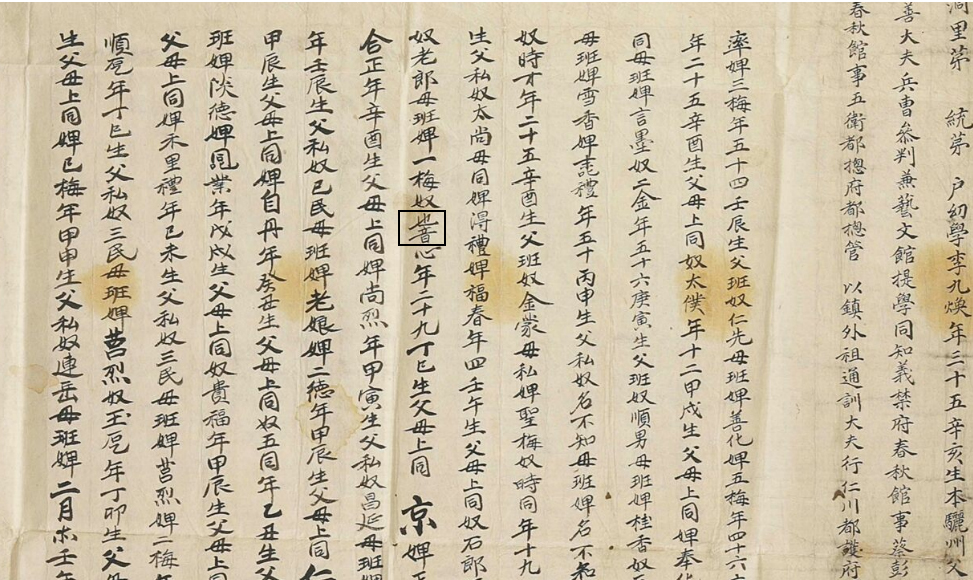 洞里第　統第　戶幼學李九煥年三十五辛亥生本驪州父
善大夫兵曹參判兼藝文館提學同知義禁府春秋館事蔡彭
春秋館事五衛都摠府都摠管　以鎮外祖通訓大夫行仁川都護府
率婢三梅年五十四壬辰生父班奴仁先母班婢善化婢五梅年四十六
年二十五辛酉生父母上同奴太僕年十二甲戌生父母上同婢奉化
同母班婢言墨奴二金年五十六庚寅生父班奴順男母班婢桂香奴
母班婢雪香婢禮年五十丙申生父私奴名不知母班婢名不知
奴時才年二十五辛酉生父班奴金蒙母私婢聖梅奴時同年十九
生父私奴太尚母同婢得禮婢福春年四壬午生父母上同奴石郎
奴老郎母班婢一梅奴年二十九丁巳生父母上同　京婢
合正年辛酉生父母上同婢尚烈年甲寅生父私奴昌延母班婢
年壬辰生父私奴己民母班婢老娘婢二德年甲辰生父母上同
甲辰生父母上同婢自丹年癸丑生父母上同奴五同年乙丑生父
班婢淡德婢業年戊戌生父母上同奴貴福年甲辰生父母上
父母上同婢禾里禮年己未生父私奴三民母班婢莒烈婢二梅年
順年丁巳生父私奴三民母班婢莒烈奴玉年丁卯生父
生父母上同婢巳梅年甲申生父私奴連岳母班婢二月壬年